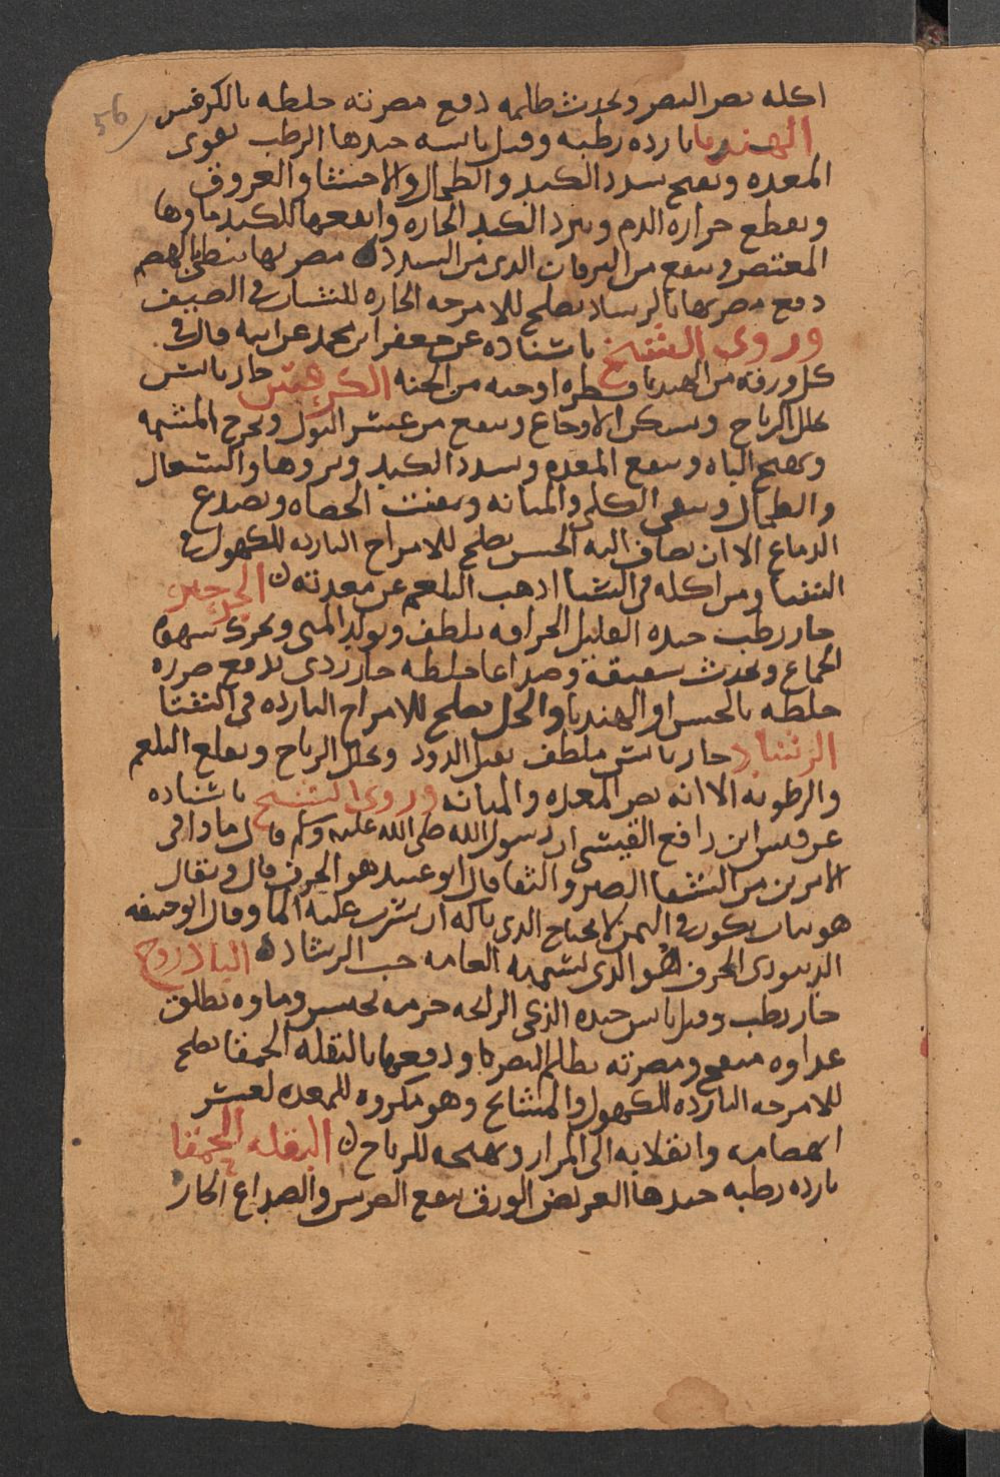 56
اكله يضر البصر ويحدث ظلمه دفع مضرته خلطه بالكرفس
الهندبا بارده رطبه وقيل يابسه جيدها الرطب تقوى
المعده وتفتح سدد الكبد والطحال والاحشا والعروق
وتقطع حرارة الدم وتبرد الكبد الحاره وانفعها للكبد ماوها
المعتصر وينفع من اليرقان الذى من السدد مضرتها تبطئ بالهضم
دفع مضرتها بالرشاد تصلح للامزجه الحاره للشباب فى الصيف
وروى الشيخ باسناده عن جعفر ابن محمد عن ابيه قال فى
كل ورقه من الهندبا قطره اوحبه من الجنه الكرفس حار يابس
يحلل الرياح ويسكن الاوجاع وينفع من عسر البول ويخرج المشيمه
ويهيج الباه وينفع المعده وسدد الكبد وبروها والسعال
والطحال وينقى الكلى والمثانه ويفتت الحصاه ويصدع
الدماغ الا ان يضاف اليه الخس يصلح للامزاج البارده للكهول فى
الشتا ومن اكله فى الشتا اذهب البلغم عن معدته الجرجير
حار رطب جيده القليل الحرافه يلطف ويولد المنى ويحرك شهوة
الجماع ويحدث شقيقه وصداعا خلطه حار ردى يدفع ضرره
خلطه بالخس او الهندبا والخل يصلح للامزاج البارده فى الشتا
الرشاد حار يابس ملطف يقتل الدود ويحلل الرياح ويقلع البلغم
والرطوبه الا انه يضر المعده والمثانه وروى الشيخ باسناده
عن قيس ابن رافع القيسى ان رسول الله صلى الله عليه وسلم قال ماذا فى
الامرين من الشفا الصبر والثفا قال ابو عبيد هو الحرف قال ويقال
هو نبات يكون فى اليمن لا يحتاج الذى ياكله ان يشرب عليه الما وقال ابو حنيفه
الدينورى الحرف هو الذى تسميه العامه حب الرشاد الباذروج
حار رطب وقيل يابس جيده الذكى الرايحه جرمه يحبس وماوه يطلق
غداوه منفع ومضرته يظلم البصر كا ودفعها بالبقله الحمقا يصلح
للامزجه البارده للكهول والمشايخ وهو مكروه للمعده لعسر
انهضامه وانقلابه الى المرار وتهيجه للرياح البقله الحمقا
بارده رطبه جيدها العريض الورق ينفع الضرس والصداع الحار